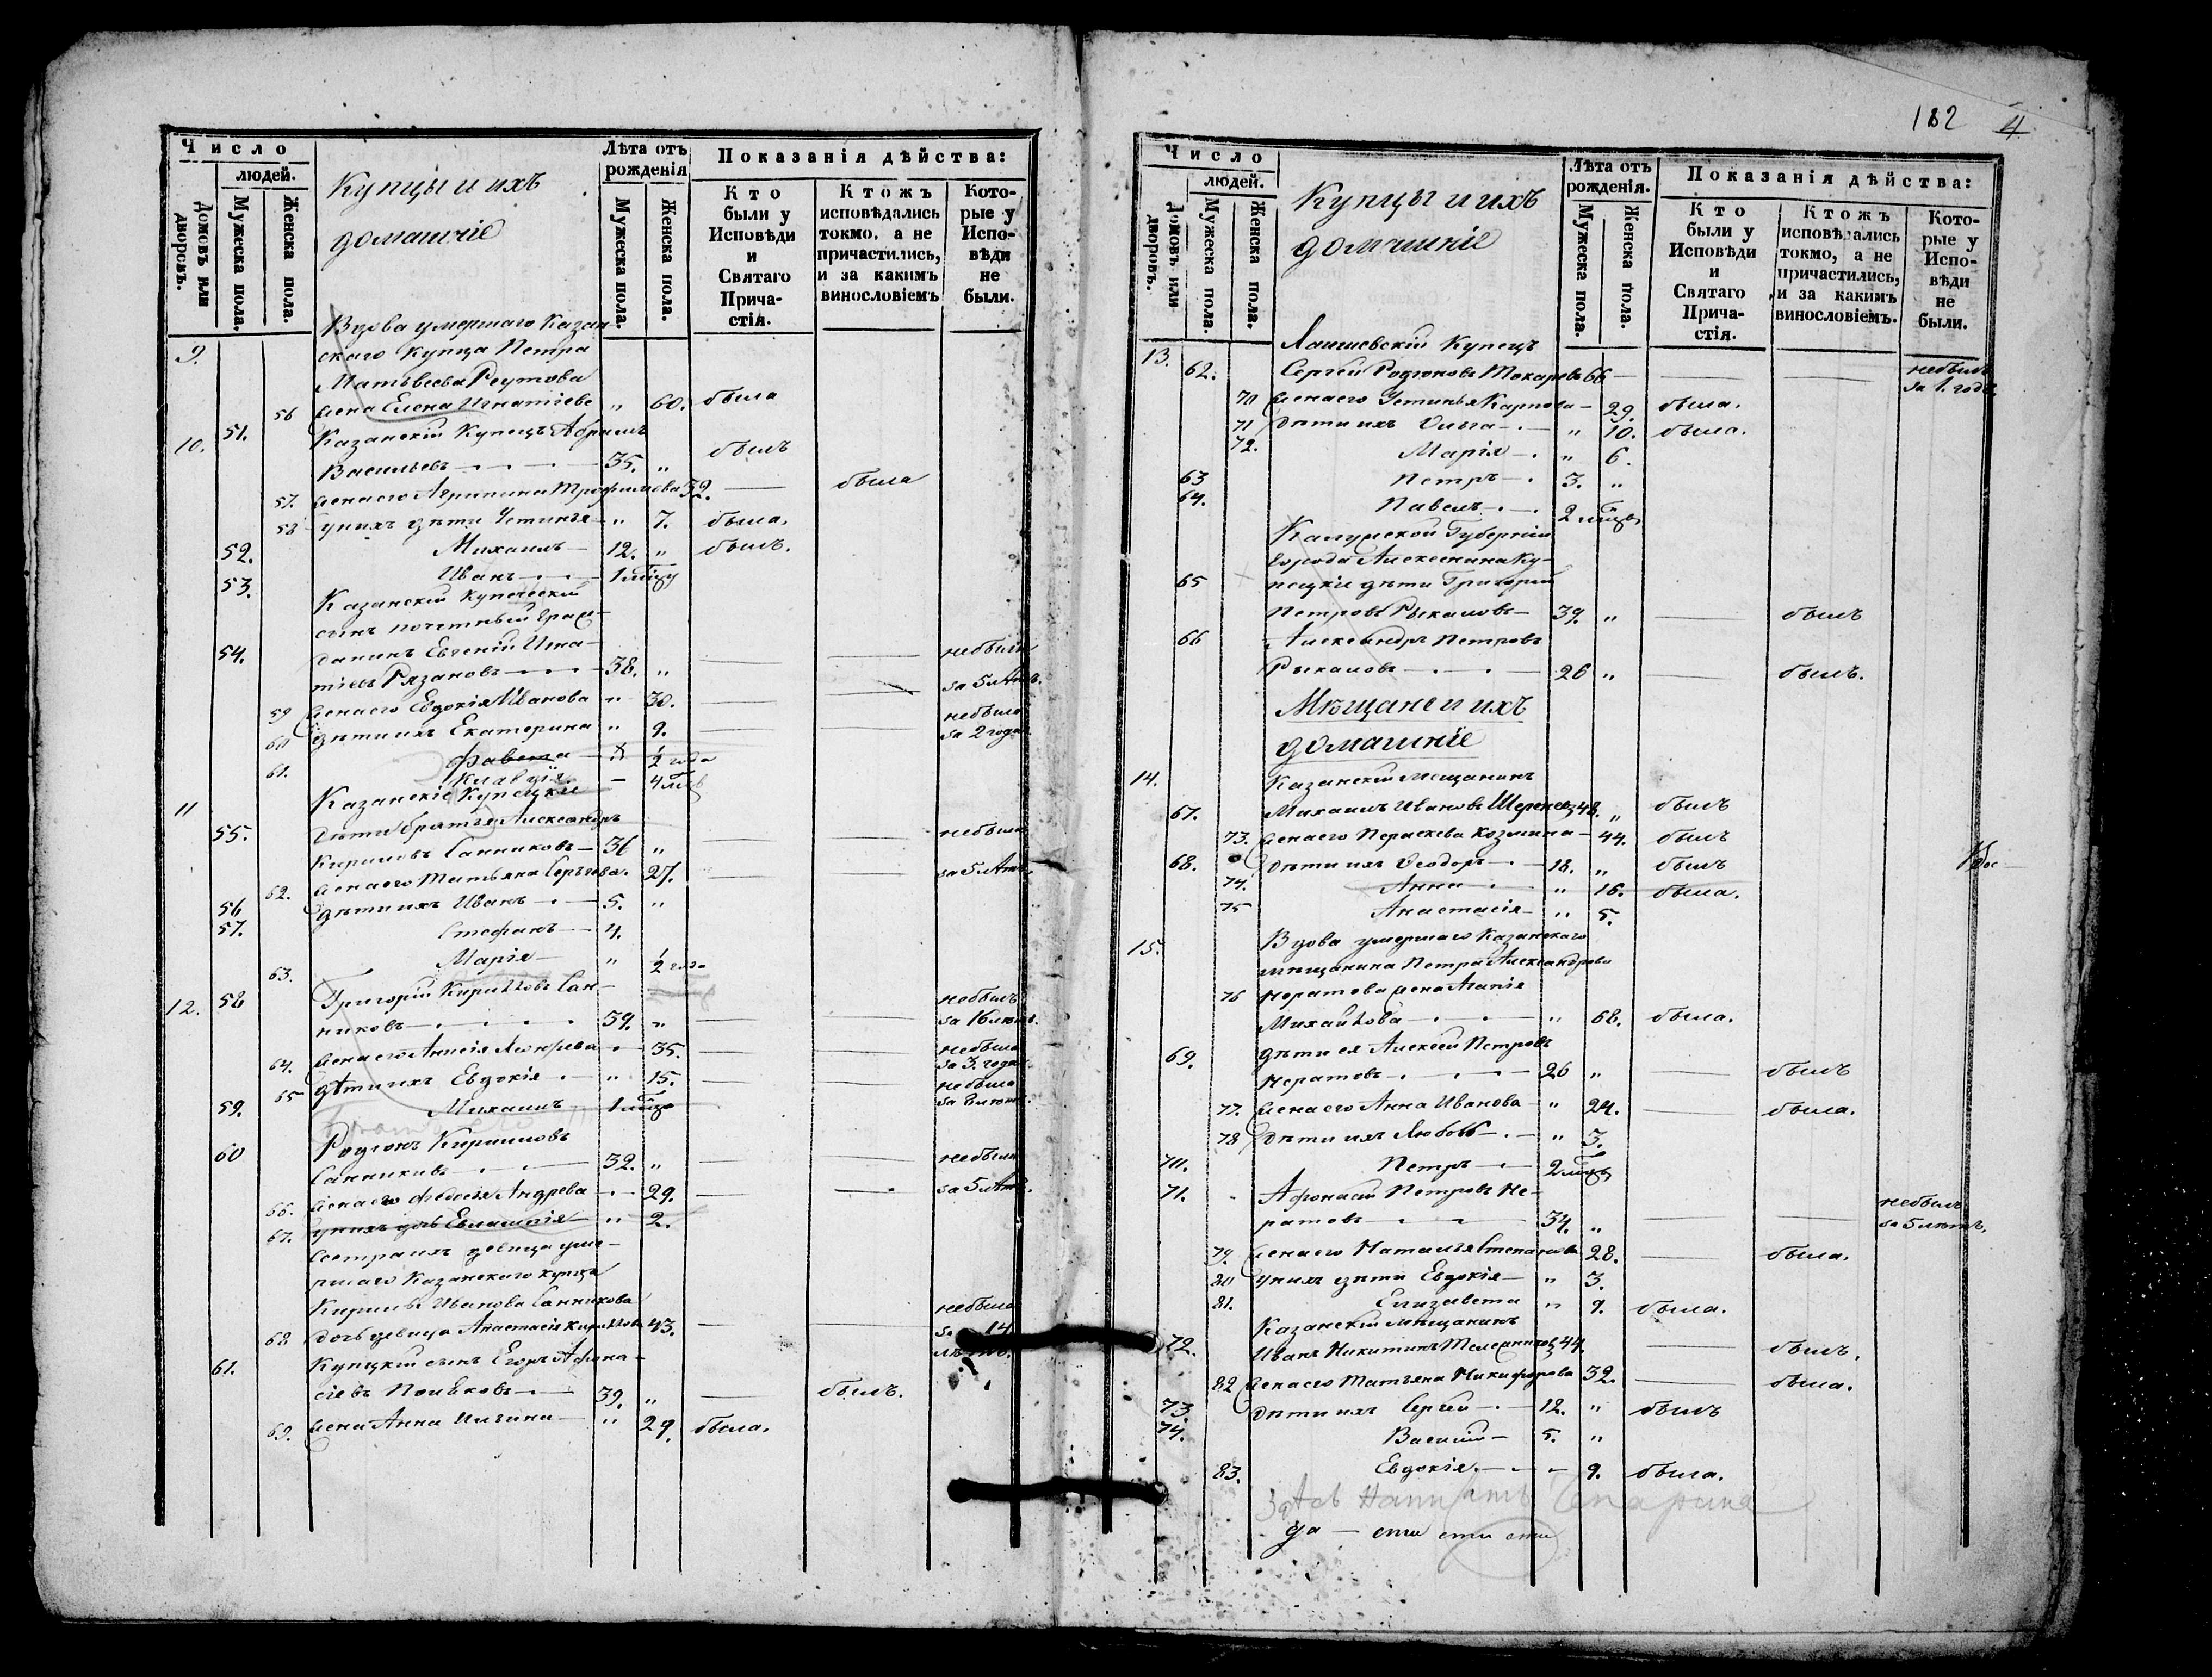 Число
людей.
Домовъ или дворовъ.
Мужеска пола.
Женска пола.
Купцы и ихъ
домашніе
Лѣта отъ рожденія
Мужеска пола.
Женска пола.
Показанія дѣйства:
Кто были у Исповѣди и Святаго Прича-стія.
Ктожъ исповѣдались токмо, а не причастились, и за какимъ винословіемъ
Кото-рые у Испо-вѣди не были.
Вдова умершаго Казан-
9. скаго Купца Петра
Матвѣева Реутова
56 жена Елена Игнатіева " 60. была
10. 51. Казанскій Купецъ Абрамъ
Васильевъ 35. " былъ
57. жена его Агрипина Трофимова 32. — была
58 у нихъ дѣти Устинья " 7. была.
52. Михаилъ 12. " былъ.
53. Иванъ 1 мѣсц
Казанскій купеческій
сынъ почетный граж-
54. данинъ Евгеній Игна-
тіевъ Рязановъ 38. " — — небылъ за 5 лѣтъ.
59 жена его Евдокія Иванова " 30. — —
60 дѣти ихъ Екатерина " 9. — — небыла за 2 года
½ года
61. Клавдія — 4 мѣс
11 Казанскіе Купецкіе
55. дѣти братья Александръ
Кириловъ Санниковъ 36 " — небылъ
62. жена его Татьяна Сергѣева 27. — — за 5 лѣтъ.
56 дѣти ихъ Иванъ 5. "
57. Стефанъ 4.
63. Марія " ½ года
12. 58 Григорій Кириловъ Сан-
никовъ 39. " — — небылъ за 16 лѣтъ.
64. жена его Анисія " 35. — — небыла за 3. года
65 дѣти ихъ Евдокія " 15. — — небыла за 8 лѣтъ
59. Михаилъ 1 мѣсц
60 Родіонъ Кириловъ
Санниковъ 32. " — — небылъ
66. жена его Андрева 29. — — за 5 лѣтъ.
67. у нихъ дочь Евлампія " 2.
Сестра ихъ девица уме-
ршаго Казанскаго купца
Кирилы Иванова Санникова
68 дочь девица Анастасія Кирилова 43. — — небыла за 14 лѣтъ.
61. Купецкій сынъ Егоръ Афона-
сіевъ 39. " — былъ.
69. жена Анна Ильина " 29. была.
182 4
Число
людей.
Домовъ или дворовъ.
Мужеска пола.
Женска пола.
Купцы и ихъ
домашніе
Лѣта отъ рожденія.
Мужеска пола.
Женска пола.
Показанія дѣйства:
Кто были у Исповѣди и Святаго Прича-стія.
Ктожъ исповѣдались токмо, а не причастились, и за какимъ винословіемъ.
Кото-рые у Испо-вѣди не были.
13. Лаишевскій Купецъ
62. Сергѣй Родіоновъ Токаревъ 66 — — небылъ за 1. годъ
70 жена его Устинья Карпова 29. была.
71 дѣти ихъ Ольга " 10. была.
72. Марія " 6.
63 Петръ 3. "
64. Павелъ 2 мѣсц
Калужской Губерніи
города Алексинина Ку-
65 пецкіе дѣти Григорій
Петровъ Рыкаловъ 39. " — былъ
66 Александръ Петровъ
Рыкаловъ 26 " — былъ.
Мѣщане и ихъ
домашніе
14. Казанскій мещанинъ
67. Михаилъ Ивановъ 48. " былъ
73. жена его Параскева Козмина 44. былъ
68. дѣти ихъ Ѳеодоръ 18. " былъ
74. Анна " 16. была.
75 Анастасія " 5.
15. Вдова умершаго Казанскаго
мѣщанина Петра Александрова
76 Нератова жена Агапія
Михайлова " 68. была.
69. дѣти ея Алексѣй Петровъ
Нератовъ 26 " — былъ
77. жена его Анна Иванова " 24. — была.
78 дѣти ихъ Любовь " 3.
70. Петръ 2 мѣсц
71. Афонасій Петровъ Не-
ратовъ 34. " — — небылъ за 5 лѣтъ.
79. жена его Наталья Степанова 28. — была.
80 у нихъ дѣти Евдокія " 3.
81. Елизавета " 9. была.
Казанскій мѣщанинъ
72. Иванъ Никитинъ 44. — былъ.
82 жена его Татьяна Никифорова 32. — была.
73. дѣти ихъ Сергѣй 12. " былъ
74. Василій 5. "
83. Евдокія 9. была.